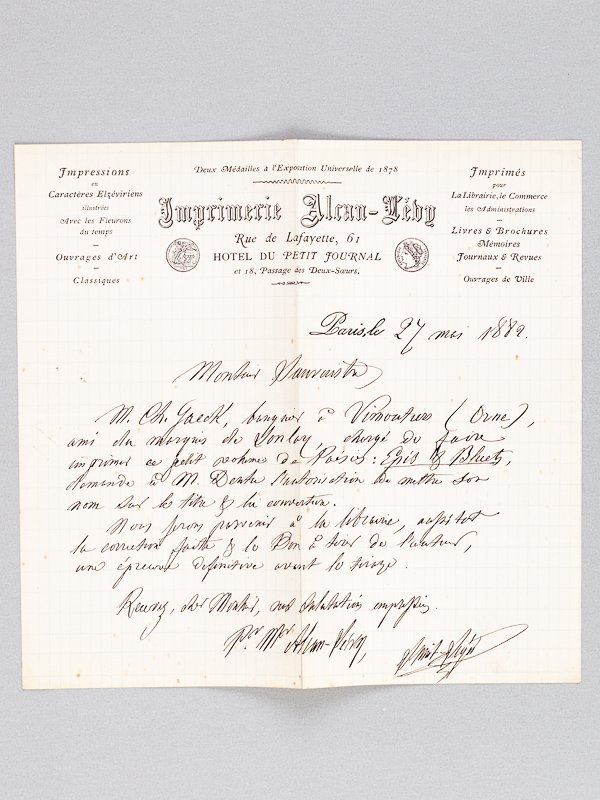 Impressions
en
Caractères Elzéviriens
illustrées
Avec les Fleurons
du temps
Ouvrages d'Art
Classiques
Deux Médailles à l'Exposition Universelle de 1878
Imprimerie Alcan-Lévy
Rue de Lafayette, 61
HOTEL DU PETIT JOURNAL
et 18, Passage des Deux-Sœurs.
Imprimés
pour
La Librairie, le Commerce
les Administrations
Livres & Brochures
Mémoires
Journaux & Revues
Ouvrages de Ville
Paris, le 27 mai 1882.
Monsieur
M. Ch. Gaeck, banquier à Vimoutiers (Orne),
ami du marquis de Lonlay, chargé de faire
imprimer ce petit volume de Poésies : Epis & Bluets,
demande à M. Dentu l'autorisation de mettre son
nom sur le titre & la couverture.
Nous ferons parvenir à la librairie, aussitôt
la correction faite & le Bon à tirer de l'auteur,
une épreuve définitive avant le tirage.
Recevez, cher Monsieur, nos salutations empressées.
Pr Mr Alcan-Lévy,